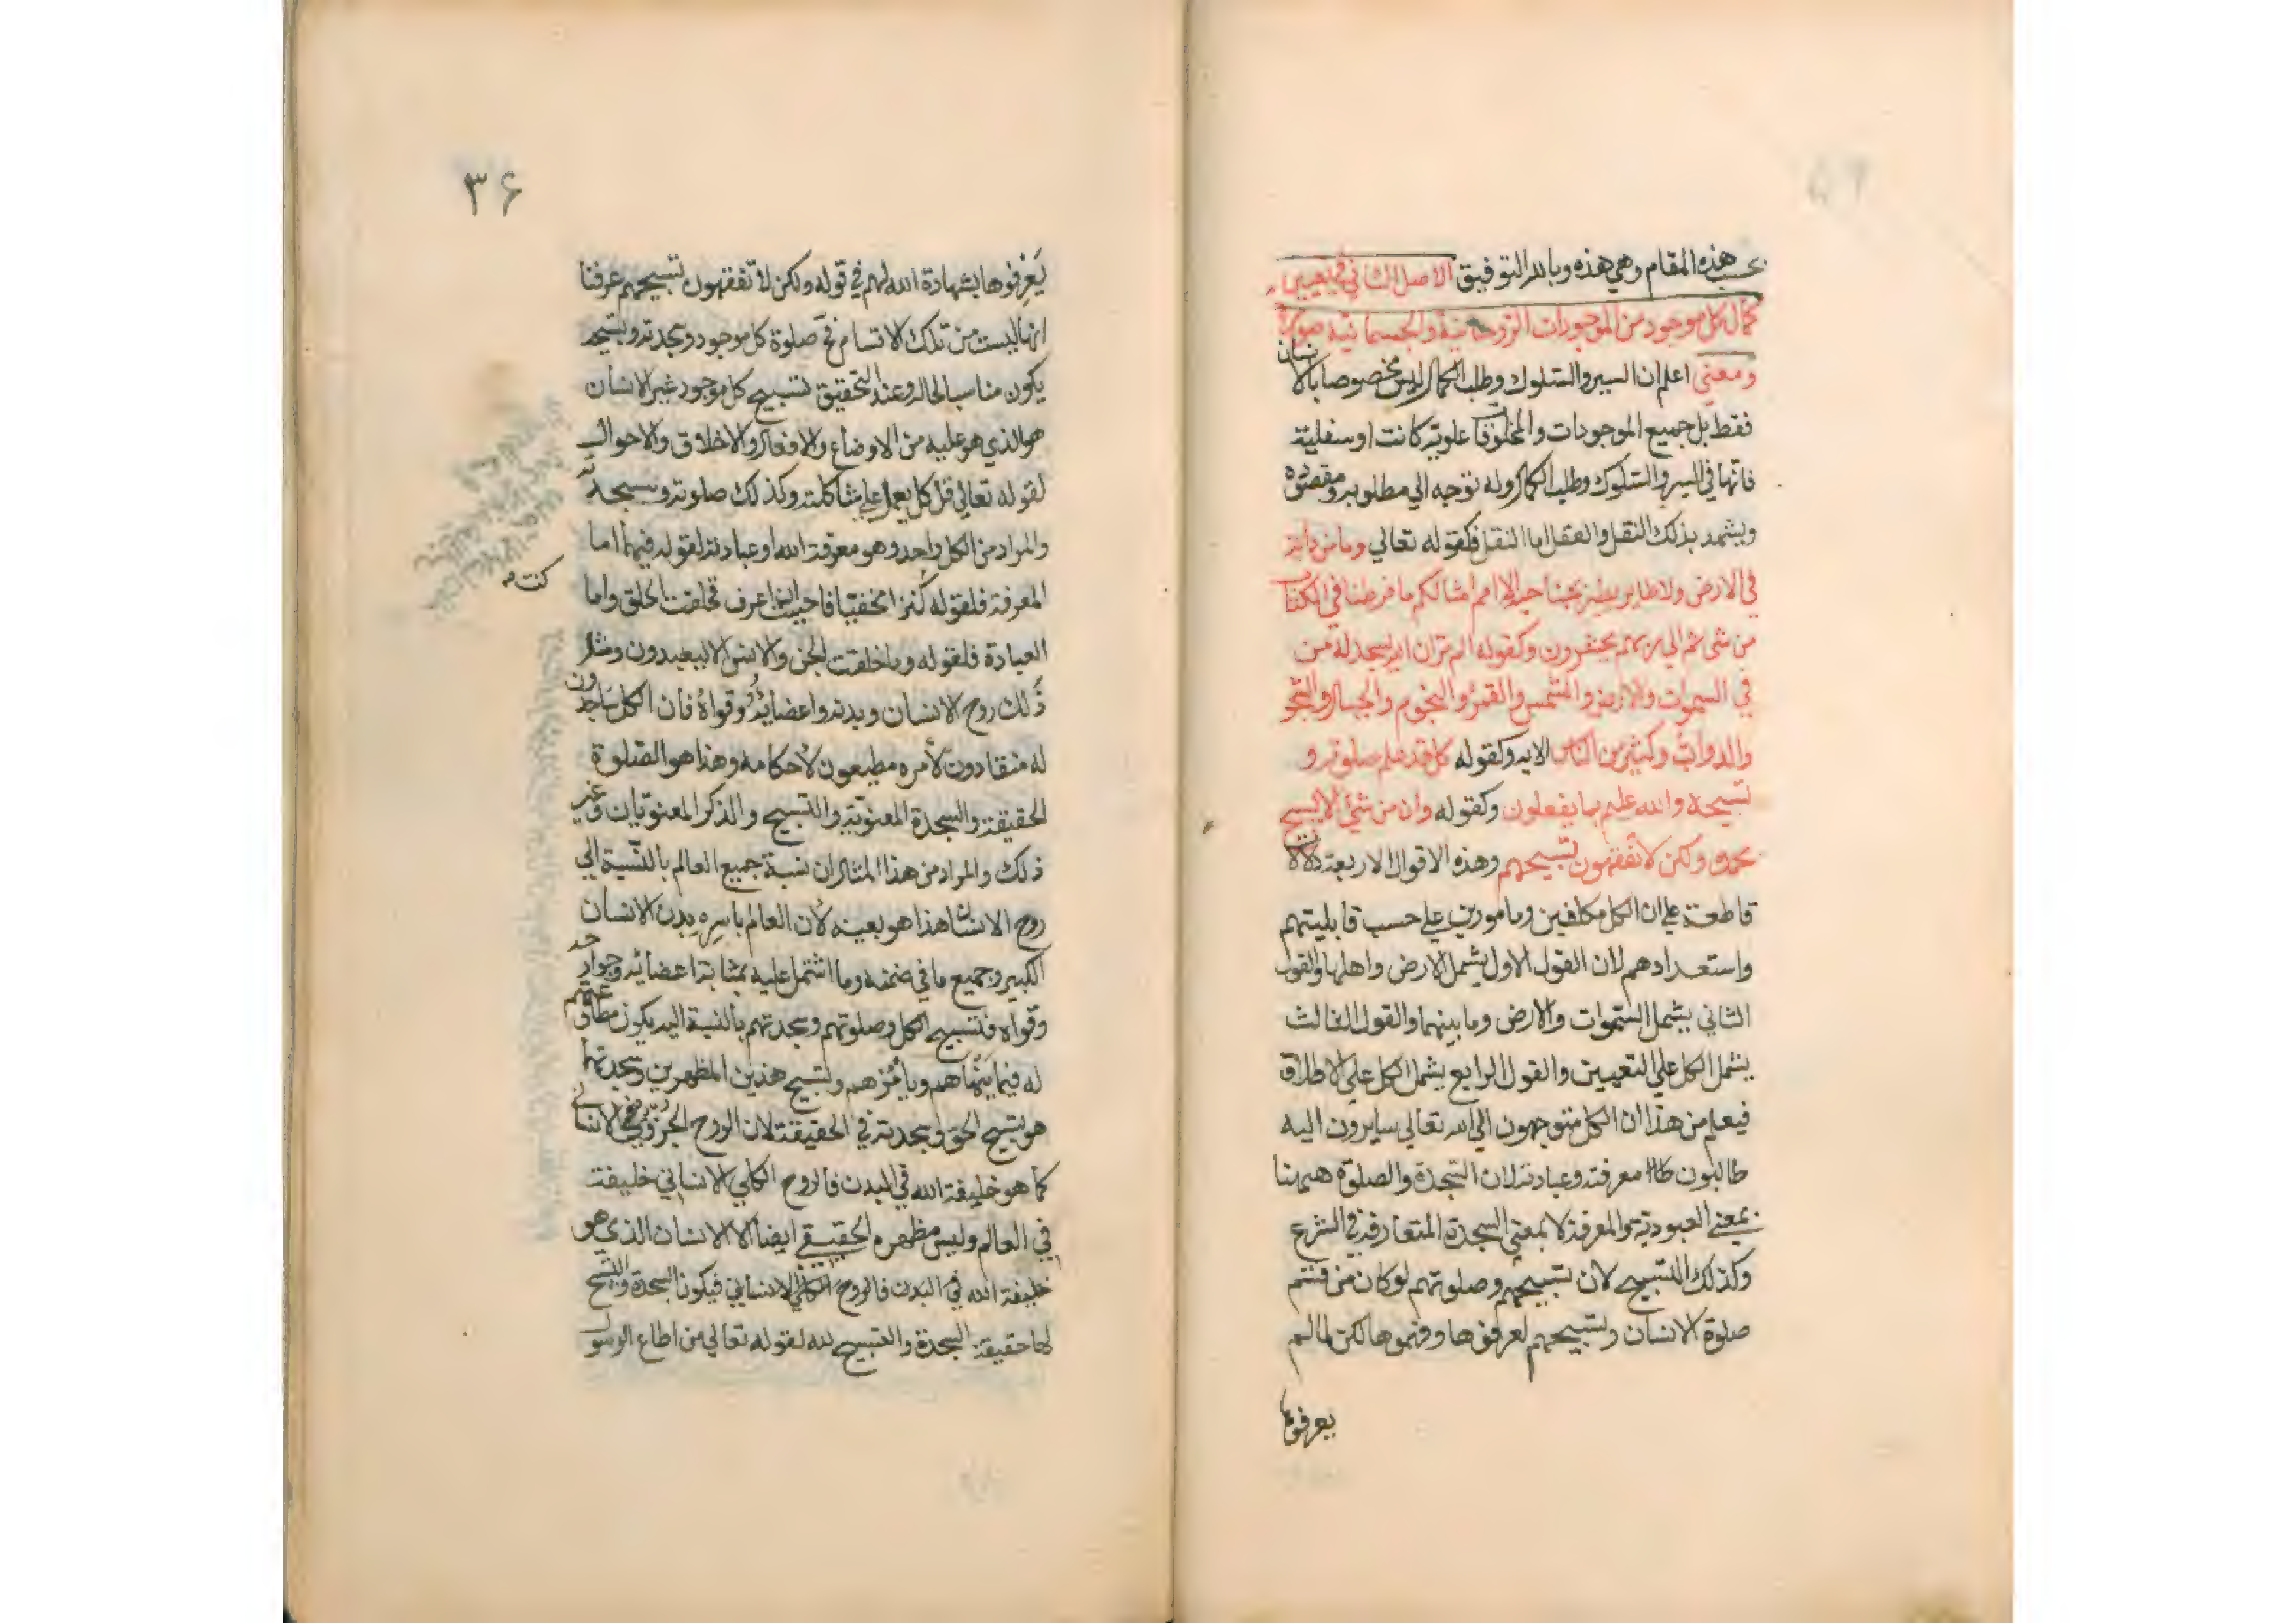 بحسب هذه المقام وهي هذه وبالله التوفيق الاصل الثاني في تعيين
كمال كل موجود من الموجودات الروحانية والجسمانية صورة
ومعني اعلم ان السير والسلوك وطلب الكمال ليس مخصوصا بالانسان
فقط بل جميع الموجودات والمخلوقات علوية كانت او سفلية
فانها في السير والسلوك وطلب الكمال وله توجه الي مطلوبه ومقصوده
ويشهد بذلك النقل والعقل اما النقل فكقوله تعالي وما من دابة
في الارض ولا طاير يطير بجناحيه الا امم امثالكم ما فرطنا في الكتاب
من شئ ثم الي ربهم يحشرون وكقوله الم تر ان الله يسجد له من
في السموات والارض والشمس والقمر والنجوم والجبال والشجر
والدواب وكثير من الناس الايه وكقوله كل قد علم صلوته و
تسبيحه والله عليم بما يفعلون وكقوله وان من شئ الا يسبح
بحمده ولكن لا تفقهون تسبيحهم وهذه الاقوال الاربعة دالات
قاطعة علي ان الكل مكلفين ومامورين علي حسب قابليتهم
واستعدادهم لان القول الاول يشمل الارض واهلها والقول
الثاني يشمل السموات والارض وما بينهما والقول الثالث
يشمل الكل علي التعيين والقول الرابع يشمل الكل علي الاطلاق
فيعلم من هذا ان الكل متوجهون الي الله تعالي سايرون اليه
طالبون معرفته وعبادته لان السجدة والصلوة هيهنا
بمعني العبودية والمعرفة لا بمعني السجدة المتعارفة في الشرع
وكذلك التسبيح لان تسبيحهم وصلوتهم لو كان من قسم
صلوة الانسان وتسبيحهم لعرفوها وفهموها لكن لما لم
يعرفوها
۳۶
يعرفوها بشهادة الله لهم في قوله ولكن لا تفقهون تسبيحهم عرفنا
انها ليست من تلك الاقسام فح صلوة كل موجود وسجدته وتسبيحه
يكون مناسبا لحاله وعند التحقيق تسبيح كل موجود غير الانسان
هو الذي هو عليه من الاوضاع والافعال والاخلاق والاحوال
لقوله تعالي قل كل يعمل علي شاكلته وكذلك صلوته وسجدته
والمراد من الكل واحد وهو معرفة الله وعبادته لقوله فيهما اما
المعرفة فلقوله كنزا مخفيا فاحببت ان اعرف فخلقت الخلق واما
كنت
العبادة فلقوله وما خلقت الجن والانس الا ليعبدون ومثل
ذلك روح الانسان وبدنه واعضائه وقواه فان الكل ساجدون
له منقادون لأمره مطيعون لأحكامه وهذا هو الصلوة
الحقيقة والسجدة المعنوية والتسبيح والذكر المعنويان وغير
ذلك والمراد من هذا المثال ان نسبة جميع العالم بالنسبة الي
روح الانسان هذا هو بعينه لأن العالم باسره بدن الانسان
الكبير وجميع ما في ضمنه وما اشتمل عليه بمثابة اعضائه وجوارحه
وقواه فتسبيح الكل وصلوتهم وسجدتهم بالنسبة اليه يكون
له فيما ينهاهم ويأمرهم وتسبيح هذين المظهرين وسجدتهما
هو تسبيح الحق وسجدته في الحقيقة لان الروح الجزوي الانساني
كما هو خليفة الله في البدن فالروح الكلي الانساني خليفته
في العالم وليس مظهره الحقيقي ايضا الا الانسان الذي هو
خليفة الله في البدن فالروح الكلي الانساني فيكون السجدة والتسبيح
لهما حقيقة السجدة والتسبيح لله لقوله تعالي من اطاع الرسول